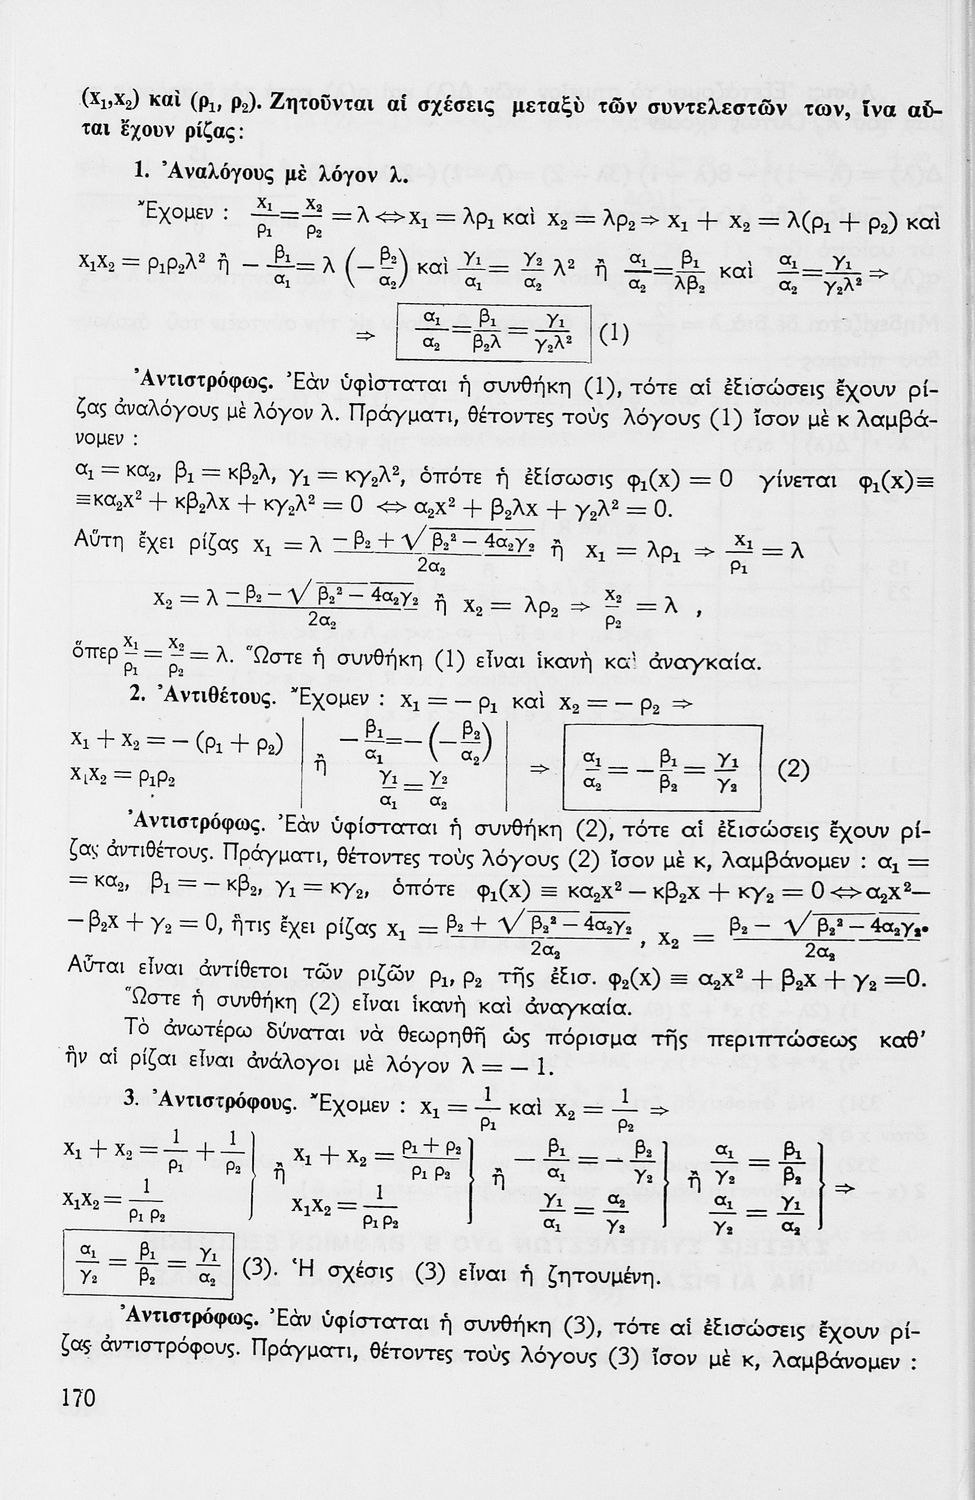 (x₁,x₂) καὶ (ρ₁, ρ₂). Ζητοῦνται αἱ σχέσεις μεταξὺ τῶν συντελεστῶν των, ἵνα αὗ-
ται ἔχουν ρίζας:
1. Ἀναλόγους μὲ λόγον λ.
Ἔχομεν : x₁/ρ₁ = x₂/ρ₂ = λ ⇔ x₁ = λρ₁ καὶ x₂ = λρ₂ ⇒ x₁ + x₂ = λ(ρ₁ + ρ₂) καὶ
x₁x₂ = ρ₁ρ₂λ² ἢ − β₁/α₁ = λ (− β₂/α₂) καὶ γ₁/α₁ = γ₂/α₂ λ² ἢ α₁/α₂ = β₁/λβ₂ καὶ α₁/α₂ = γ₁/γ₂λ² ⇒
⇒ α₁/α₂ = β₁/β₂λ = γ₁/γ₂λ² (1)
Ἀντιστρόφως. Ἐὰν ὑφίσταται ἡ συνθήκη (1), τότε αἱ ἐξισώσεις ἔχουν ρί-
ζας ἀναλόγους μὲ λόγον λ. Πράγματι, θέτοντες τοὺς λόγους (1) ἴσον μὲ κ λαμβά-
νομεν :
α₁ = κα₂, β₁ = κβ₂λ, γ₁ = κγ₂λ², ὁπότε ἡ ἐξίσωσις φ₁(x) = 0 γίνεται φ₁(x)≡
≡κα₂x² + κβ₂λx + κγ₂λ² = 0 ⇔ α₂x² + β₂λx + γ₂λ² = 0.
Αὕτη ἔχει ρίζας x₁ = λ (−β₂ + √(β₂² − 4α₂γ₂))/2α₂ ἢ x₁ = λρ₁ ⇒ x₁/ρ₁ = λ
x₂ = λ (−β₂ − √(β₂² − 4α₂γ₂))/2α₂ ἢ x₂ = λρ₂ ⇒ x₂/ρ₂ = λ ,
ὅπερ x₁/ρ₁ = x₂/ρ₂ = λ. Ὥστε ἡ συνθήκη (1) εἶναι ἱκανὴ καὶ ἀναγκαία.
2. Ἀντιθέτους. Ἔχομεν : x₁ = − ρ₁ καὶ x₂ = − ρ₂ ⇒
x₁ + x₂ = − (ρ₁ + ρ₂) | ἢ − β₁/α₁ = − (− β₂/α₂) | ⇒ α₁/α₂ = − β₁/β₂ = γ₁/γ₂ (2)
x₁x₂ = ρ₁ρ₂ | γ₁/α₁ = γ₂/α₂ |
Ἀντιστρόφως. Ἐὰν ὑφίσταται ἡ συνθήκη (2), τότε αἱ ἐξισώσεις ἔχουν ρί-
ζας ἀντιθέτους. Πράγματι, θέτοντες τοὺς λόγους (2) ἴσον μὲ κ, λαμβάνομεν : α₁ =
= κα₂, β₁ = − κβ₂, γ₁ = κγ₂, ὁπότε φ₁(x) ≡ κα₂x² − κβ₂x + κγ₂ = 0 ⇔ α₂x² −
− β₂x + γ₂ = 0, ἥτις ἔχει ρίζας x₁ = (β₂ + √(β₂² − 4α₂γ₂))/2α₂ , x₂ = (β₂ − √(β₂² − 4α₂γ₂))/2α₂.
Αὗται εἶναι ἀντίθετοι τῶν ριζῶν ρ₁, ρ₂ τῆς ἐξισ. φ₂(x) ≡ α₂x² + β₂x + γ₂ =0.
Ὥστε ἡ συνθήκη (2) εἶναι ἱκανὴ καὶ ἀναγκαία.
Τὸ ἀνωτέρω δύναται νὰ θεωρηθῇ ὡς πόρισμα τῆς περιπτώσεως καθ’
ἣν αἱ ρίζαι εἶναι ἀνάλογοι μὲ λόγον λ = − 1.
3. Ἀντιστρόφους. Ἔχομεν : x₁ = 1/ρ₁ καὶ x₂ = 1/ρ₂ ⇒
x₁ + x₂ = 1/ρ₁ + 1/ρ₂ | ἢ x₁ + x₂ = (ρ₁ + ρ₂)/ρ₁ρ₂ | ἢ − β₁/α₁ = − β₂/γ₂ | ἢ α₁/γ₂ = β₁/β₂ | ⇒
x₁x₂ = 1/ρ₁ρ₂ | x₁x₂ = 1/ρ₁ρ₂ | γ₁/α₁ = α₂/γ₂ | α₁/γ₂ = γ₁/α₂ |
α₁/γ₂ = β₁/β₂ = γ₁/α₂ (3). Ἡ σχέσις (3) εἶναι ἡ ζητουμένη.
Ἀντιστρόφως. Ἐὰν ὑφίσταται ἡ συνθήκη (3), τότε αἱ ἐξισώσεις ἔχουν ρί-
ζας ἀντιστρόφους. Πράγματι, θέτοντες τοὺς λόγους (3) ἴσον μὲ κ, λαμβάνομεν :
170